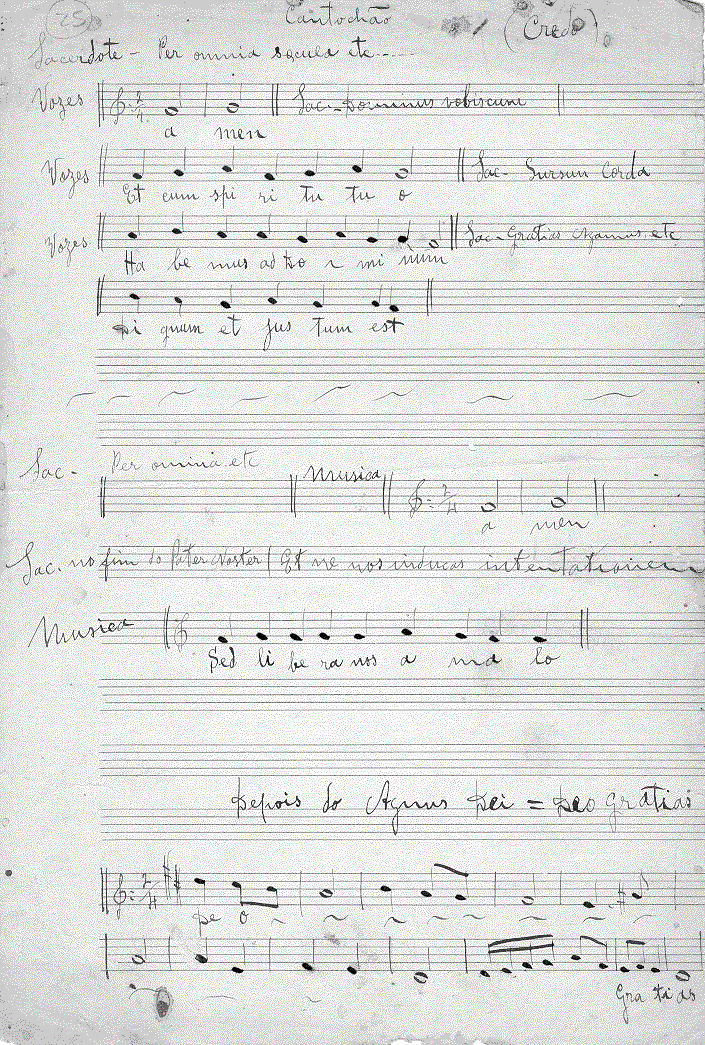 25
Cantochão
(Credo)
Sacerdote - Per omnia sæcula etc.....
Vozes Sac.-Dominus vobiscum
a men
Vozes Sac- Sursun Corda
Et cum spi ri tu tu o
Vozes Sac-Gratias agamus etc
Ha be mus ad Do i mi num
Di gnum et jus tum est
Sac- Per omnia etc Musica
a men
Sac. no fim do Pater Noster (Et ne nos inducas intentationem
Musica
Sed li be ra nos a ma lo
Depois do Agnus Dei = Deo gratias
De o
Gra ti as